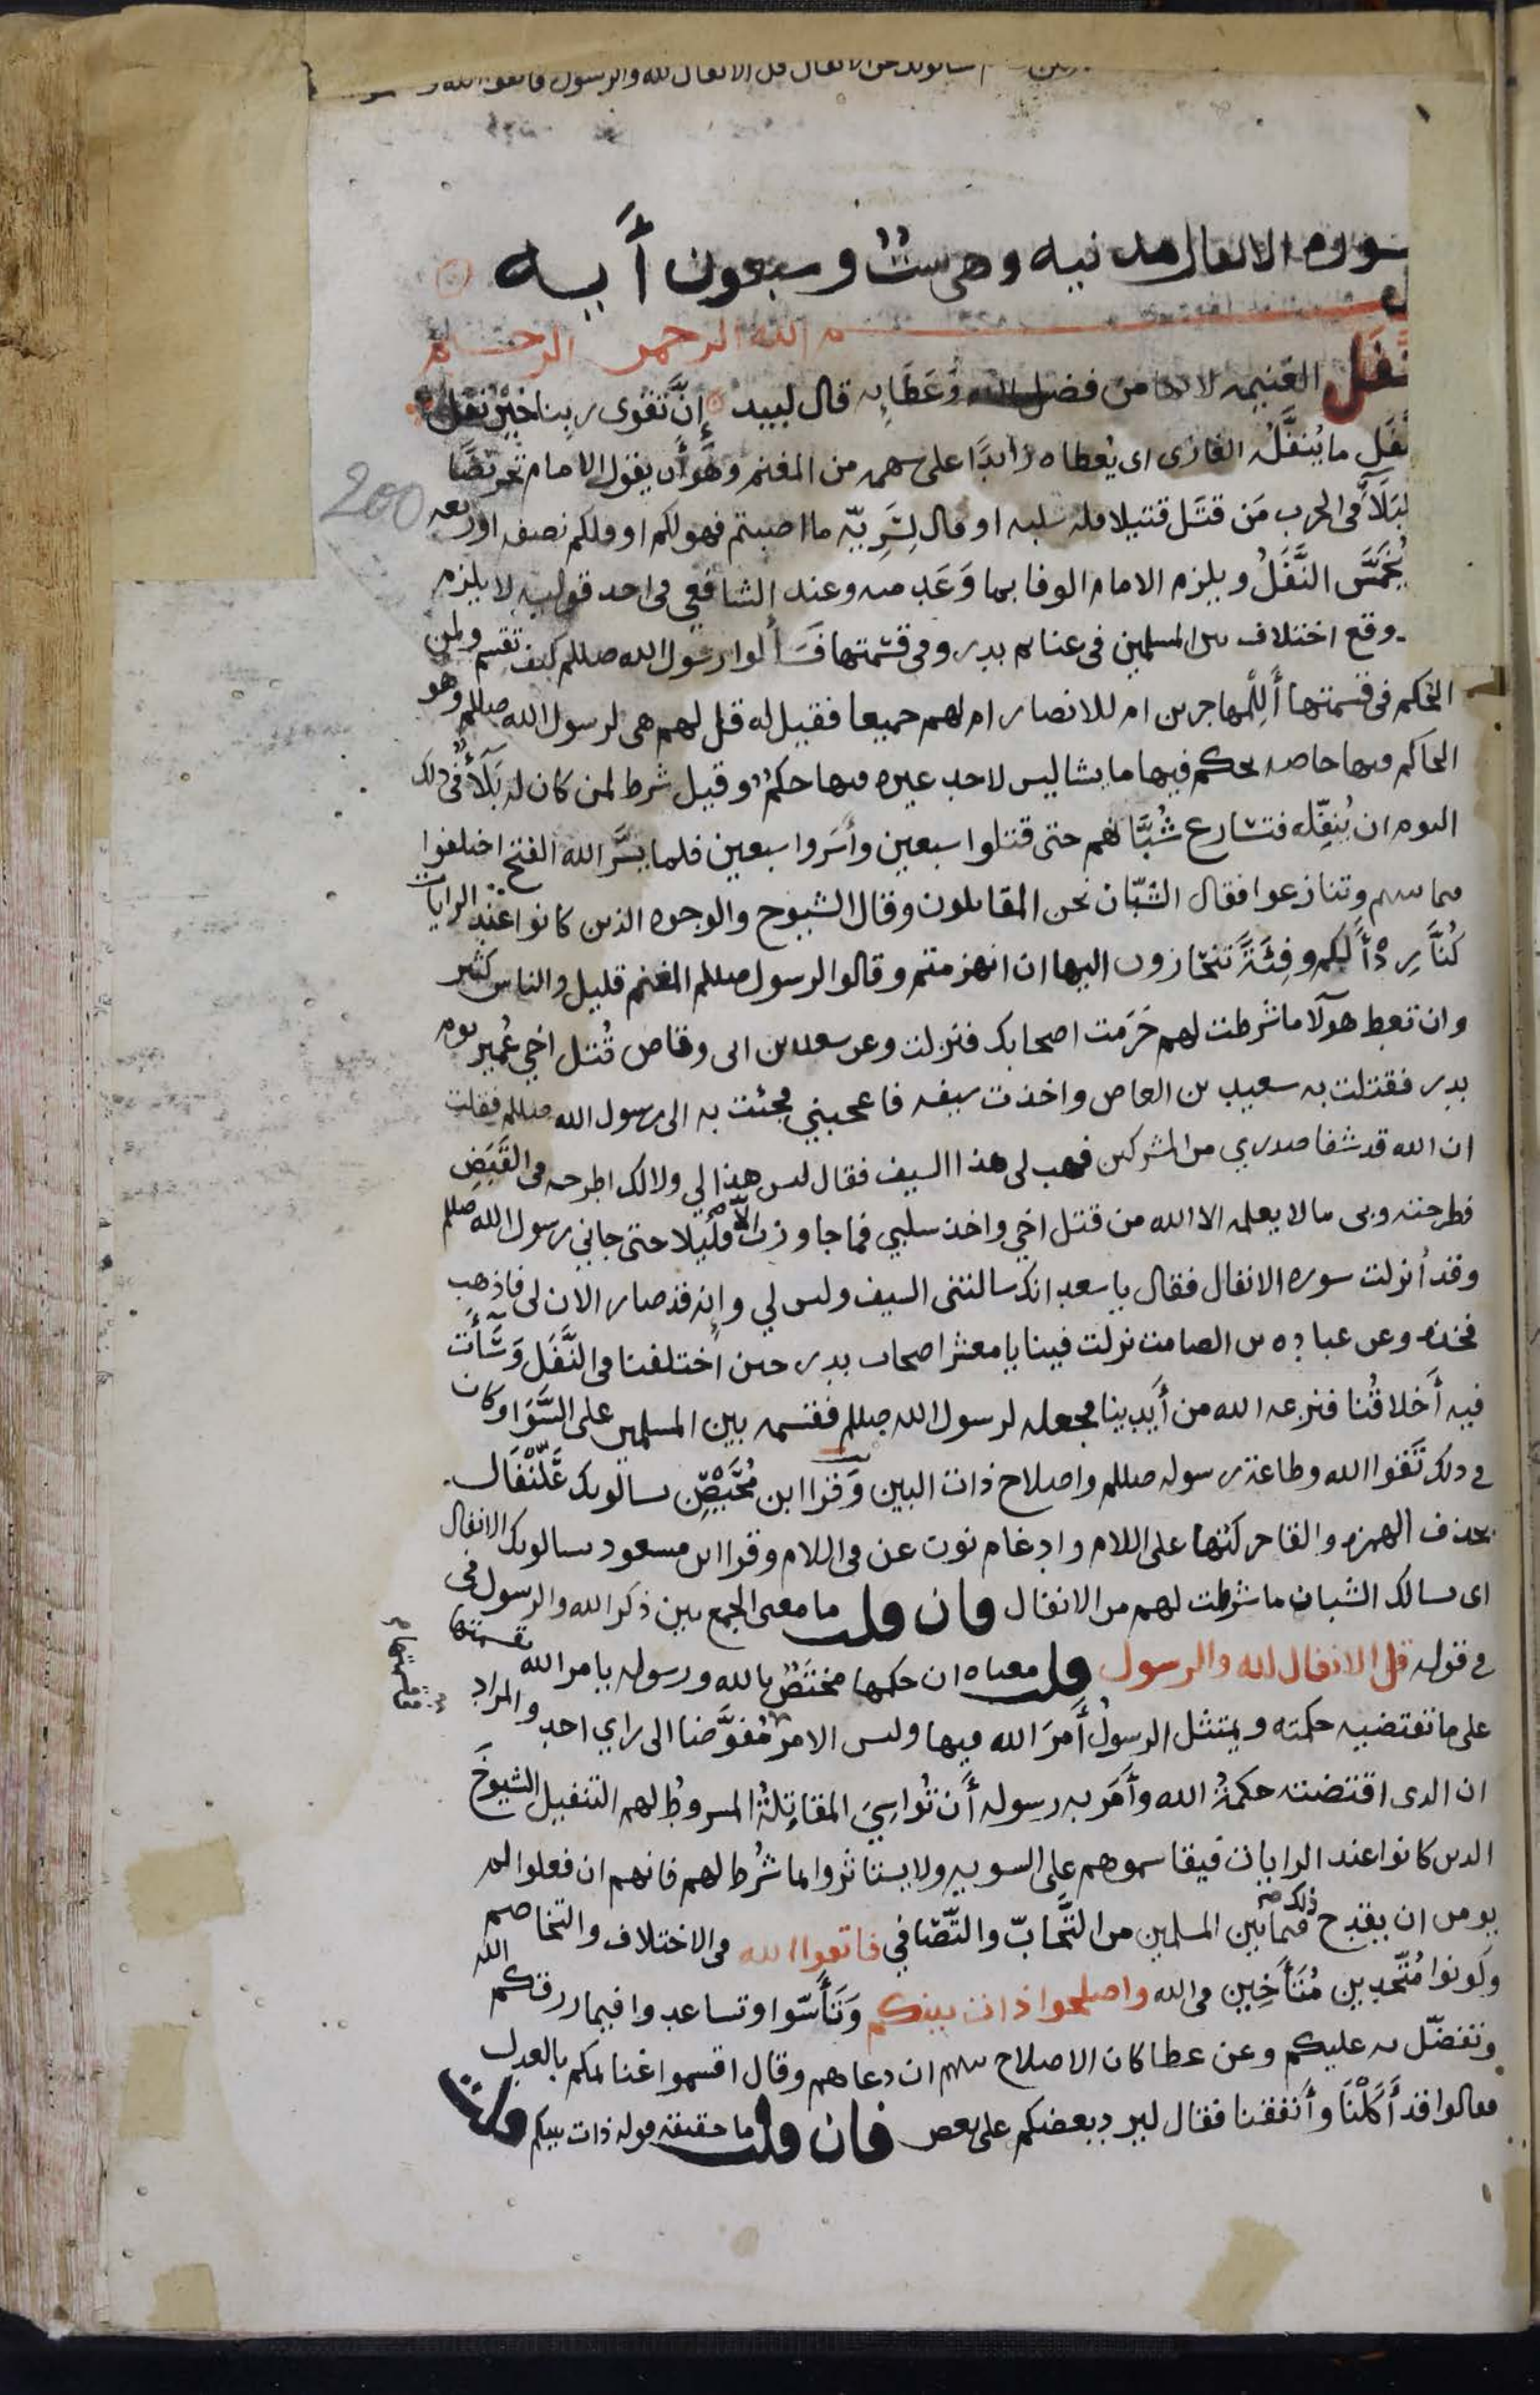 سالونك عن الانفال قل الانفال لله والرسول فاتقوا الله
سورة الانفال مدنيه وهى ست وسبعون أيه
م الله الرحمن الرحيم
نفل الغنيمه لانها من فضل الله وعَطَايِه قال لبيد إِنَّ تقوى ربِنا خيْرُ نفَل
نفَلِ ما يُنفَّلُه الغازى اى يُعطاه زايدًا على سهمه من المغنم وهُوَ أَن يقول الامام تحريضًا
البَلَآ فى الحرب مَن قتَل قتيلا فله سلبه او قال لِسَرِيّه ما اصبتم فهو لكم او فلكم نصفه او ربعه
يُخَمَّسَ النَّفَلُ ويلزم الامام الوفا بما وَعَدَ منه وعند الشافعي فى احد قوليه لا يلزم
وقع اختلاف بىن المسلمين فى غنايم بدر وفى قسْمتها فَسَأَلوا رسول الله صللم كيف تقسم ولمن
الحكم فى قسمتها أَلِلْمهاجرين ام للانصار ام لهم جميعا فقيل له قل لهم هى لرسول الله صللم وهو
الحاكم فيها خاصه يحكم فيها ما يشا ليس لاحد غيره فيها حكمٌ وقيل شرط لمن كان له بَلَآءٌ فى ذلك
اليوم ان يُنفِّله فتسارع شُبَّانهم حتى قتلوا سبعين وأَسَروا سبعين فلما يسَّر الله الفتح اختلفوا
فيما بينهم وتنازعوا فقال الشبّان نحن المقاتلون وقال الشيوخ والوجوه الذين كانوا عند الرايات
كُنَّا رِدْأً لكم وفِئَةً تنحازون اليها ان انهزمتم وقالوا لرسول صللم المغنم قليل والناس كثير
وان تعط هولآ ما شرطت لهم حَرَمت اصحابك فنزلت وعن سعد بن ابى وقاص قُتل اخي عُمير يوم
بدر فقتلت به سعيد بن العاص واخذت سيفه فاعجبني فجئت به الى رسول الله صللم فقلت
ان الله قد شفا صدري من المشركين فهب لى هذا السيف فقال ليس هذا لي ولا لك اطرحه فى القَبَضِ
فطرحته وبى ما لا يعلمه الا الله من قتل اخي واخذ سلبي فما جاوزت الاّ قليلا حتى جاني رسول الله صللم
وقد أنزلت سوره الانفال فقال يا سعد انك سالتنى السيف وليس لي وإنه قد صار الان لى فاذهب
فخذه وعن عباده بن الصامت نزلت فينا يا معشر اصحاب بدر حين اختلفنا فى النَّفَل وَسَأَت
فيه أخلاقُنا فنزعه الله من أَيدينا فجعله لرسول الله صللم فقسمه بين المسلمين على السَّوَا وكان
فى ذلك تَقوا الله وطاعة رسوله صللم واصلاح ذات البين وَقرا ابن مُحَيْصِن يسالونك عَلَّنْفَال
بحذف الهمزه والقا حركتها على اللام وادغام نون عن فى اللام وقرا ابن مسعود يسالونك الانفال
اى يسالك الشبان ما شرطت لهم من الانفال فان قلت ما معنى الجمع بين ذكر الله والرسول فى
فى قوله قل الانفال لله والرسول قلت معناه ان حكمها مختَصٌّ بالله ورسوله يامر الله بقسمتها
على ما تقتضيه حكمته ويمتثل الرسولُ أَمرَ الله فيها وليس الامر مُفوَّضا الى راي احد والمراد
ان الذى اقتضته حكمةُ الله وأَمَر به رسوله أن تُواسِيَ المقاتِلةُ المشروطُ لهم التنفيل الشيوخَ
الذين كانوا عند الرايات فيقاسموهم على السويه ولا يستاثروا بما شُرط لهم فانهم ان فعلوا لم
يومن ان يقدح ذلك فيما بين المسلمين من التَّحابّ والتَّصافي فاتقوا الله فى الاختلاف والتخاصم
وكونوا مُتّحدين مُتَأَخين فى الله واصلحوا ذات بينكم وَتَأَسّوا وتساعدوا فيما رزقكم الله
وتفضّل به عليكم وعن عطا كان الاصلاح بينهم ان دعاهم وقال اقسموا غنايمكم بالعدل
فقالوا قد أَكَلْنَا وأَنفقنا فقال ليرد بعضكم على بعض فان قلت ما حقيقة قوله ذات بينكم قلت
200